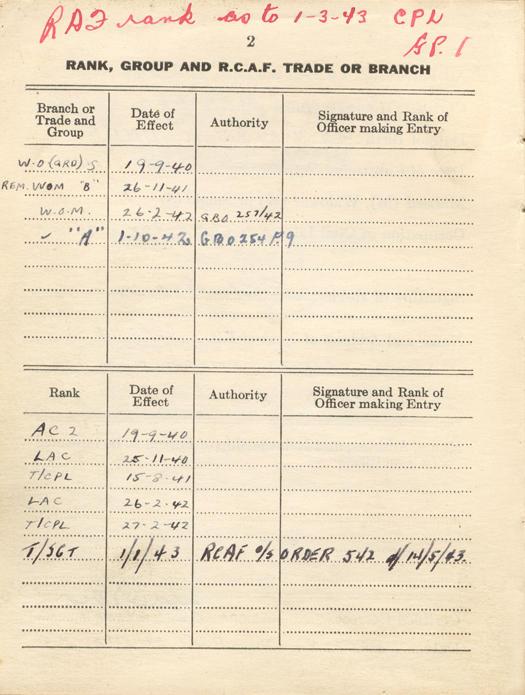 RAF rank as to 1-3-43 CPL
GP. 1
2
RANK, GROUP AND R.C.A.F. TRADE OR BRANCH
Branch or Trade and Group Date of Effect Authority Signature and Rank of Officer making Entry
W.O (GRD) S 19-9-40
REM. WOM "B" 26-11-41
W.O.M. 26-2-42 G.B.O. 257/42
✓ "A" 1-10-42 GBO 254 P.9
Rank Date of Effect Authority Signature and Rank of Officer making Entry
AC 2 19-9-40
LAC 25-11-40
T/CPL 15-8-41
LAC 26-2-42
T/CPL 27-2-42
T/SGT 1/1/43 RCAF O/S ORDER 542 d/14/5/43.